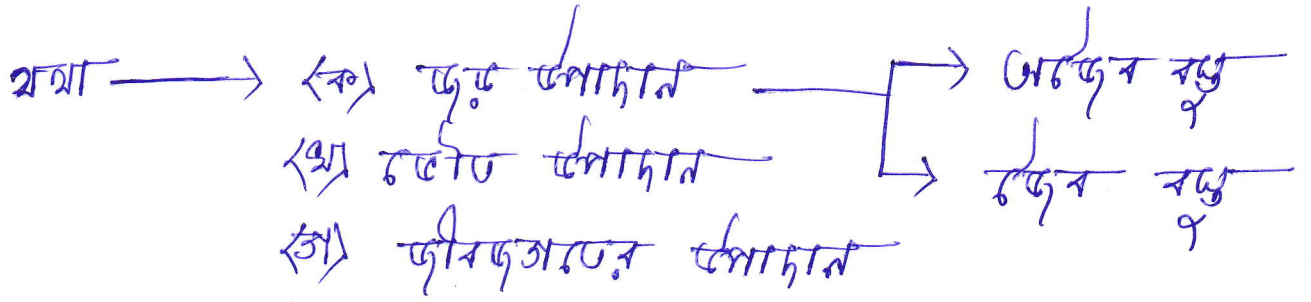 যথা → (ক) জড় উপাদান → অজৈব বস্তু
(খ) ভৌত উপাদান → জৈব বস্তু
(গ) জীবজগতের উপাদান